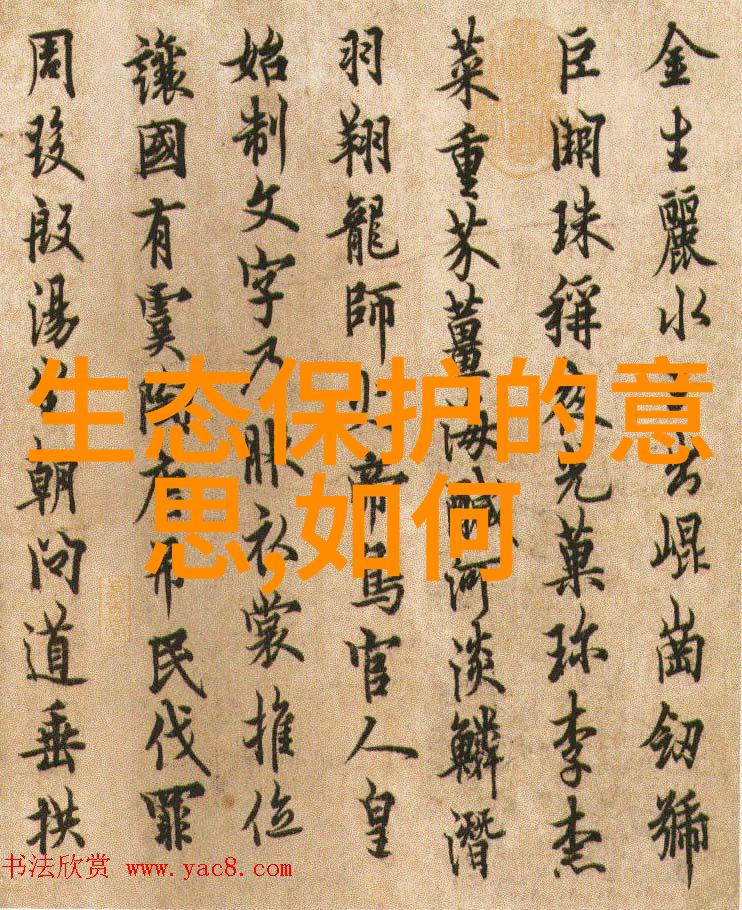 金生麗水玉出崐崗劒號
巨闕珠稱夜光菓珎李柰
菜重芥薑海醎河淡鱗潛
羽翔龍師火帝鳥官人皇
始制文字乃服衣裳推位
讓國有虞陶唐弔民伐罪
周發殷湯坐朝問道垂拱
生态保护的意
思,如何
书法欣赏 www.yac8.com